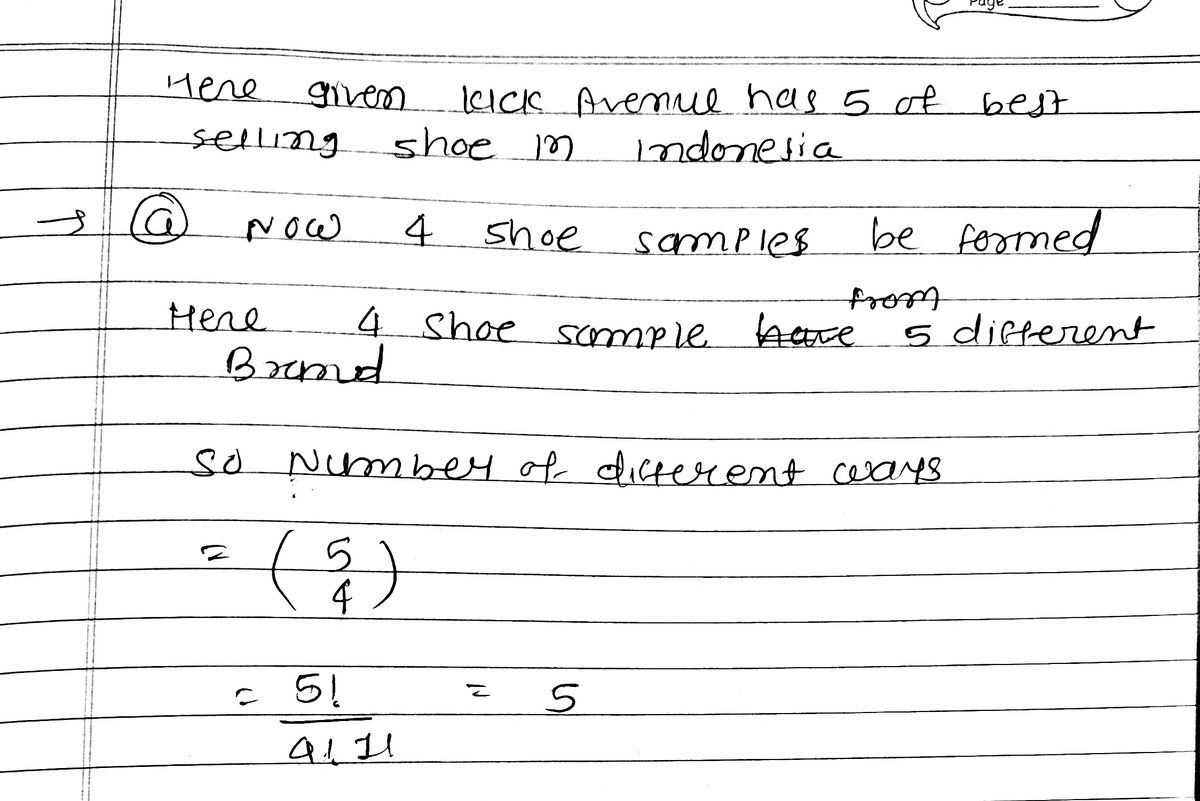 Page
Here given kick Avenue has 5 of best
selling shoe in indonesia
→ (a) Now 4 shoe samples be formed
from
Here 4 shoe sample have 5 different
Brand
so Number of different ways
= ( 5
4 )
= 5! = 5
4! 1!